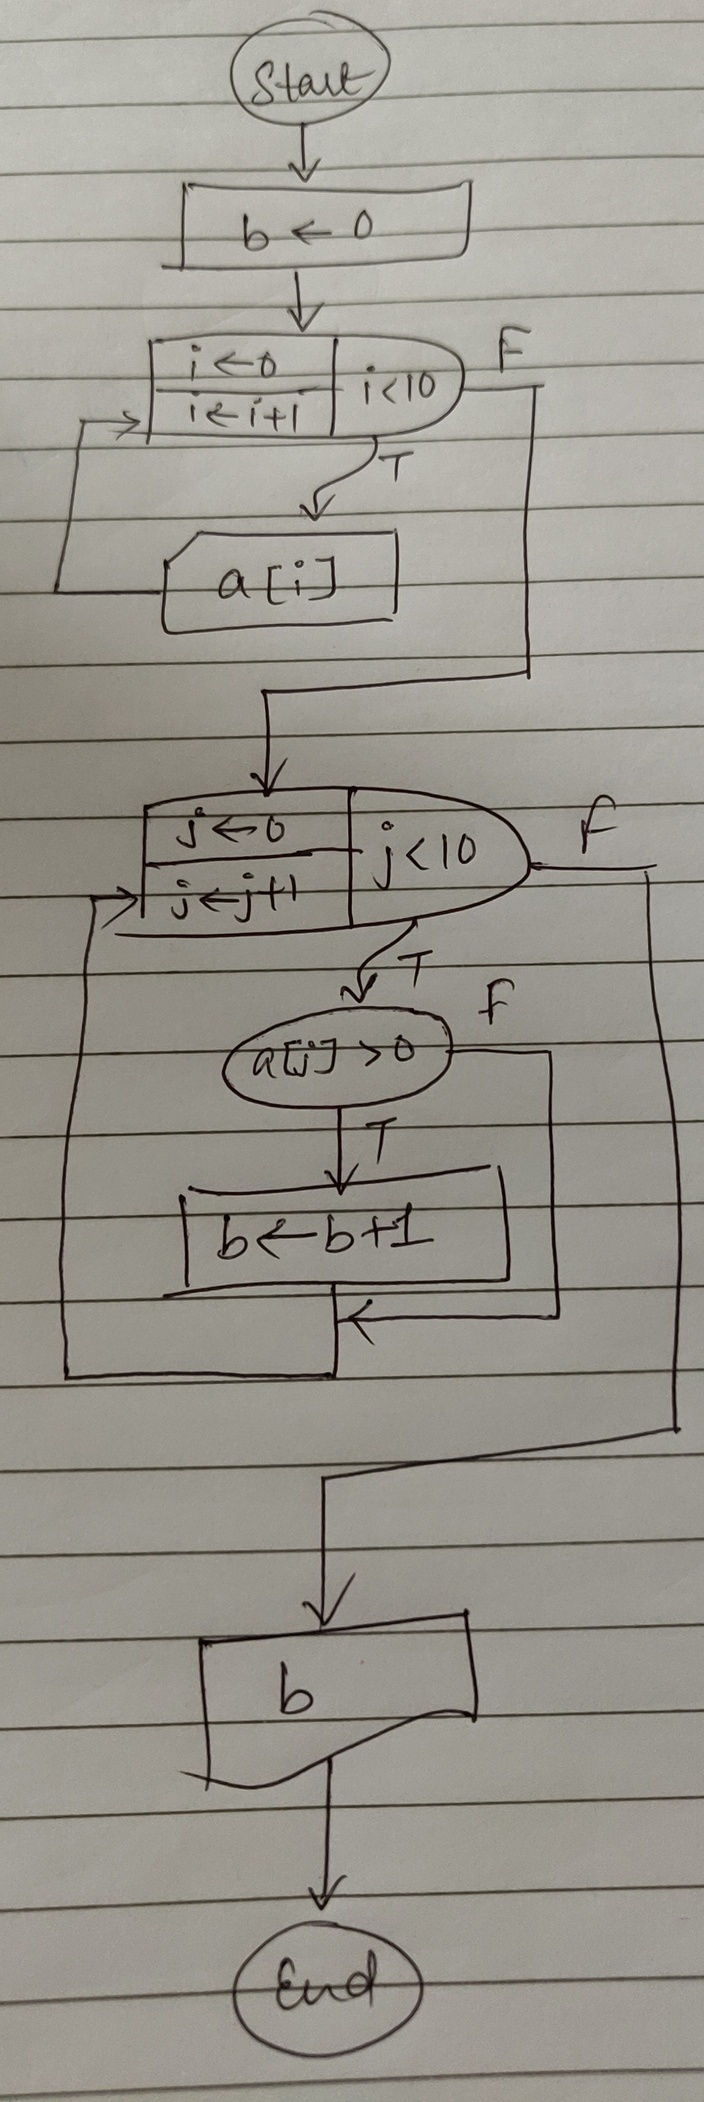 Start
b ← 0
i ← 0
i ← i+1
i < 10
F
T
a[i]
j ← 0
j ← j+1
j < 10
F
T
a[j] > 0
F
T
b ← b+1
b
End